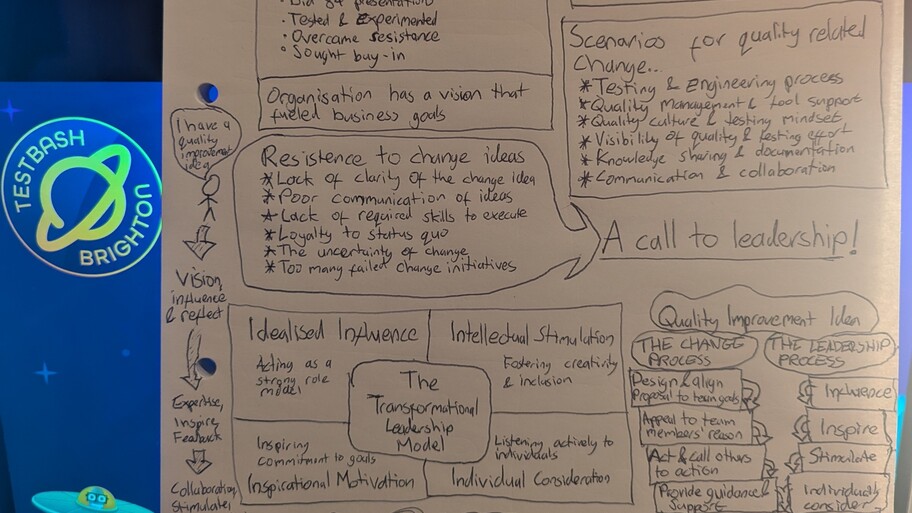 TESTBASH
BRIGHTON
• Tested & Experimented
• Overcame resistance
• Sought buy-in
Organisation has a vision that
fueled business goals
Scenarios for quality related
change...
* Testing & engineering process
* Quality management & tool support
* Quality culture & testing mindset
* Visibility of quality & testing effort
* Knowledge sharing & documentation
* Communication & collaboration
I have a
quality
improvement
idea
Resistence to change ideas
* Lack of clarity of the change idea
* Poor communication of ideas
* Lack of required skills to execute
* Loyalty to status quo
* The uncertainty of change
* Too many failed change initiatives
A call to leadership!
Vision,
influence
& reflect
Expertise,
Inspire,
Feedback
Collaboration,
Stimulate,
Idealised Influence
Acting as a
strong role
model
Intellectual Stimulation
Fostering creativity
& inclusion
The
Transformational
Leadership
Model
Inspiring
commitment to goals
Inspirational Motivation
Listening actively to
individuals
Individual Consideration
Quality Improvement Idea
THE CHANGE
PROCESS
THE LEADERSHIP
PROCESS
Design & align
Proposal to team goals
Appeal to team
members' reason
Act & call others
to action
Provide guidance &
support
Influence
Inspire
Stimulate
Individually
consider